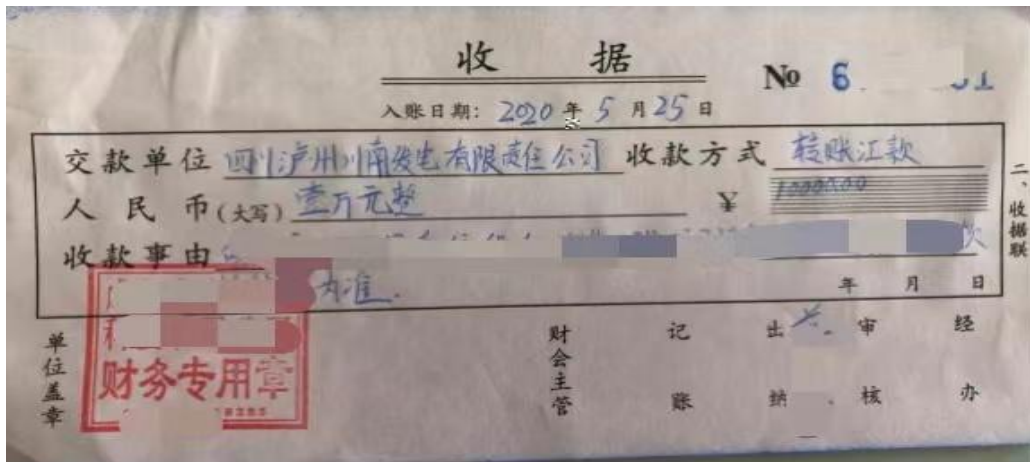 收 据
No 6
入账日期: 2020 年 5 月 25 日
交款单位 四川泸州川南发电有限责任公司 收款方式 转账汇款
人民币(大写) 壹万元整 ¥ 10000.00
收款事由 款
为准.
年 月 日
二、收据联
单位盖章
财务专用章
财会主管 记账 出纳 审核 经办